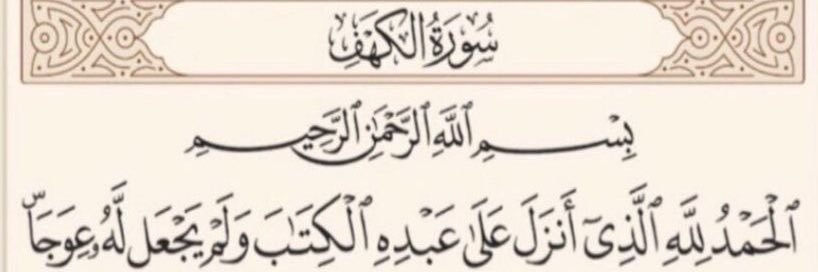 سُورَةُ الكَهْفِ
بِسْمِ ٱللَّهِ ٱلرَّحْمَٰنِ ٱلرَّحِيمِ
ٱلْحَمْدُ لِلَّهِ ٱلَّذِىٓ أَنزَلَ عَلَىٰ عَبْدِهِ ٱلْكِتَٰبَ وَلَمْ يَجْعَل لَّهُۥ عِوَجَاۜ